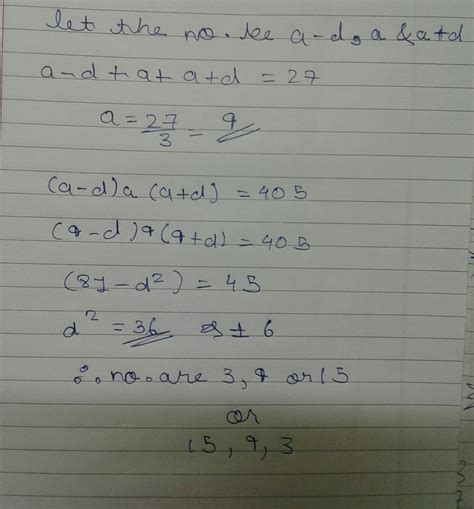 let the no. be a-d, a & a+d
a-d+a+a+d = 27
a = 27/3 = 9
(a-d)a(a+d) = 405
(9-d)9(9+d) = 405
(81-d²) = 45
d² = 36 ± 6
∴ no. are 3, 9 or 15
or
15, 9, 3
3
7